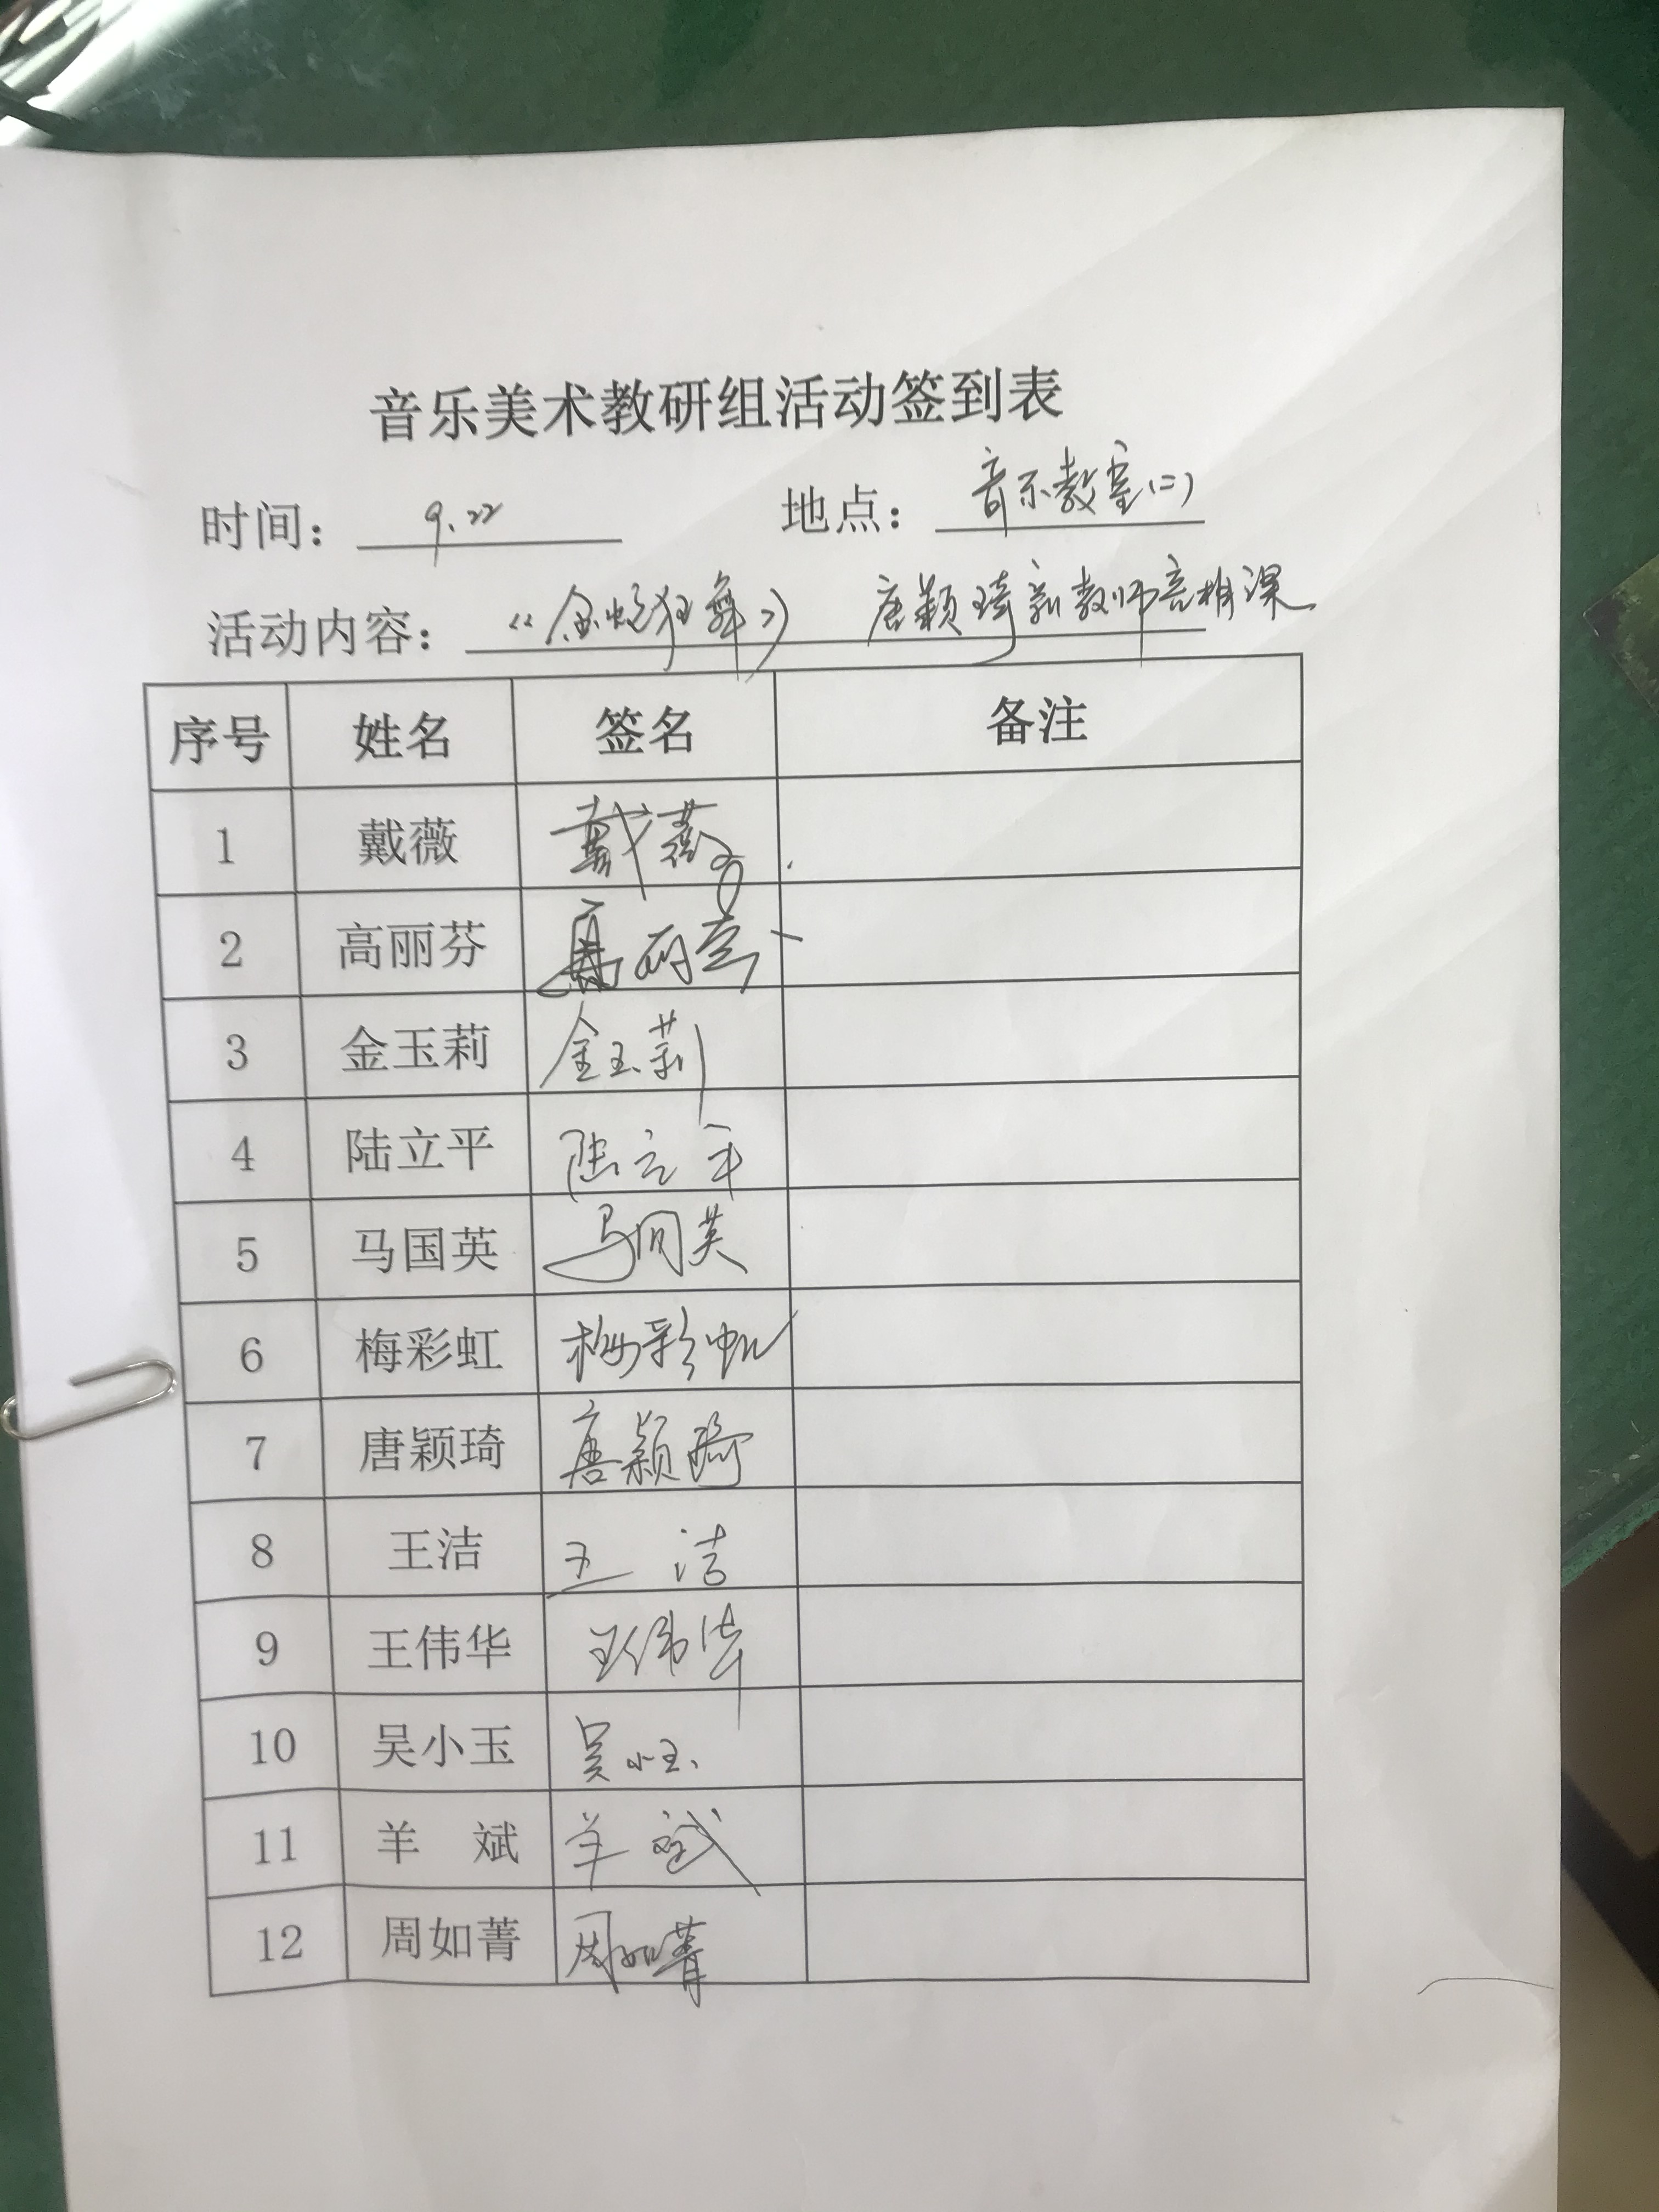 音乐美术教研组活动签到表
时间： 9.22 地点： 音乐教室(二)
活动内容： 《金蛇狂舞》 唐颖琦新教师亮相课
序号 姓名 签名 备注
1 戴薇 戴薇
2 高丽芬 高丽芬
3 金玉莉 金玉莉
4 陆立平 陆立平
5 马国英 马国英
6 梅彩虹 梅彩虹
7 唐颖琦 唐颖琦
8 王洁 王洁
9 王伟华 王伟华
10 吴小玉 吴小玉
11 羊 斌 羊斌
12 周如菁 周如菁